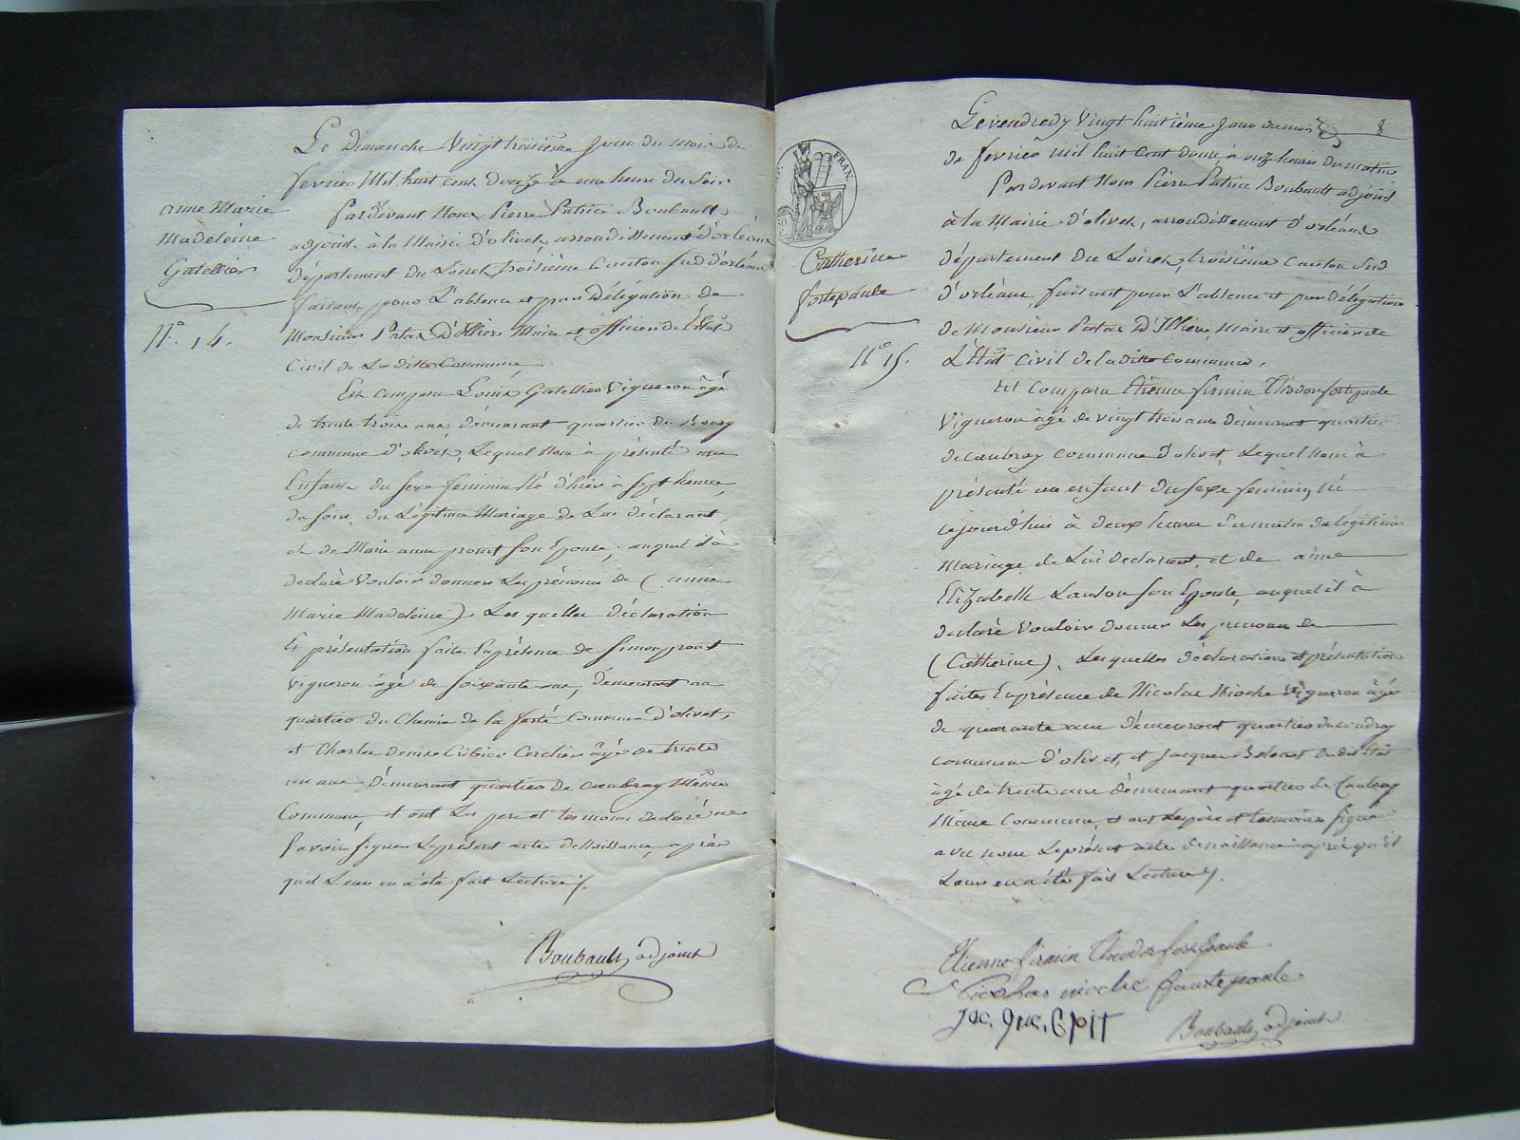 Le Dimanche Vingt troisième Jour du mois de
fevrier Mil huit cent Douze à une heure du Soir
Pardevant Nous Pierre Patrice Boubault
adjoint à la Mairie d'olivet arrondissement d'orléans
département du Loiret, troisième Canton sud d'orléans
faisant pour L'absence et par Délégation de
Monsieur Patas D'Illiers Maire et officier de L'état
Civil de La ditte Commune
Anne Marie
Madeleine
Gatellier
N°. 14.
Est comparu Louis Gatellier Vigneron âgé
de trente trois ans, demeurant quartier du Bourg
commune d'olivet, Lequel Nous à présenté une
Enfant du sexe feminin Né d'hier à sept heures
du soir, du Légitime Mariage de Lui déclarant
et de Marie anne proust son Epouse, auquel il à
declaré Vouloir donner Les prénoms de (anne
Marie Madeleine). Les quelles déclaration
Et présentation faite En présence de Simon proust
vigneron âgé de soixante ans, demeurant au
quartier du Chemin de la ferté Commune d'olivet,
et Charles denis Cribier Cerclier âgé de trente
un ans Demeurant quartier de Caubray Même
Commune, et ont Les pere et témoins declaré ne
savoir signer Le présent acte de Naissance, après
quel Leur en a été fait Lecture /.
Boubault, adjoint
Le vendredy Vingt huitième Jour du mois
de fevrier mil huit Cent douze à onze heures du matin
Pardevant Nous Pierre Patrice Boubault adjoint
à la Mairie d'olivet, arrondissement d'orléans
département du Loiret, troisième Canton Sud
d'orléans, faisant pour L'absence et par délégation
de Monsieur Patas D'Illiers, Maire et officier de
L'Etat Civil de la ditte Commune.
FRAN.
Catherine
fortepaule
N° 15.
Est Comparu Etienne firmin Théodore fortepaule
Vigneron âgé de vingt trois ans demeurant quartier
de Caubray Commune d'olivet, Lequel Nous à
présenté un enfant du sexe feminin, Né
cejourd'hui à deux heures du matin du légitime
Mariage de Lui Declarant, et de aimé
Elizabeth Lanson son Epouse, auquel il à
declaré Vouloir donner Les prenoms de
(Catherine), Lesquelles déclaration et présentation
faites En présence de Nicolas Nioche Vigneron âgé
de quarante ans demeurant quartier de Caubray
commune d'olivet, et Jacques
âgé de trente ans demeurant quartier de Caubray
Même Commune, et ont Le père et témoins signé
avec nous Le présent acte de naissance après qu'il
Leur en a été fait Lecture /.
Etienne firmin Theodor fortepaule
Nicolas nioche fautepaule
Jac. que.
Boubault, adjoint